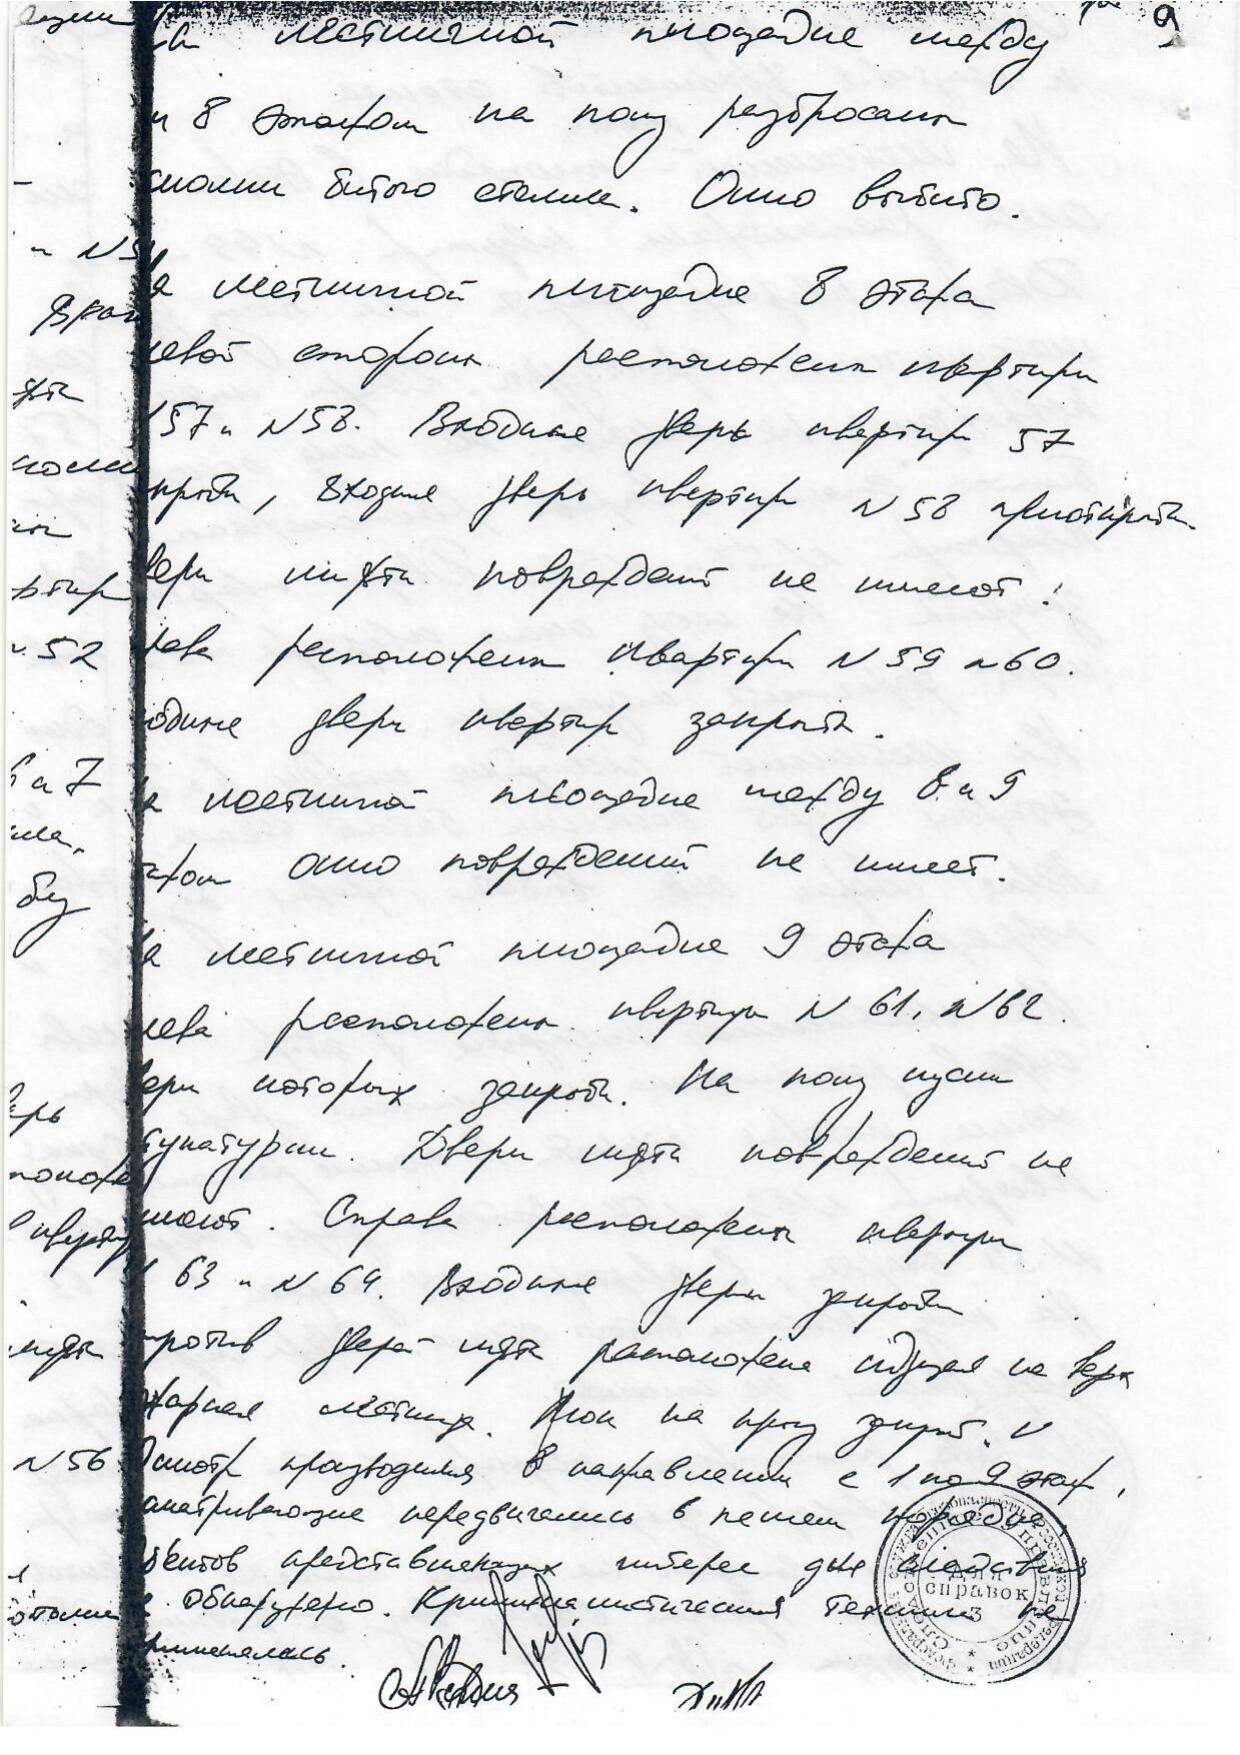 9
На лестничной площадке между
и 8 этажом на полу разбросаны
осколки битого стекла. Окно выбито.
На лестничной площадке 8 этажа
с левой стороны расположены квартиры
N57 и N58. Входные дверь квартиры 57
закрыта, входная дверь квартиры N58 приоткрыта.
Двери лифта повреждений не имеют.
Справа расположены квартиры N59 и 60.
Входные двери квартир закрыты.
На лестничной площадке между 8 и 9
этажом окно повреждений не имеет.
На лестничной площадке 9 этажа
слева расположены квартиры N 61, N62.
Двери которых закрыты. На полу куски
штукатурки. Двери лифта повреждений не
имеют. Справа расположены квартиры
N 63 и N 64. Входные двери закрыты
напротив дверей лифта расположена идущая на верх
пожарная лестница. Люк на крышу закрыт.
Осмотр производился в направлении с 1 по 9 этаж,
осматривающие передвигались в пешем порядке,
объектов представляющих интерес для следствия
не обнаружено. Криминалистическая техника не
применялась.
N56
52
и 7
для
справок
3